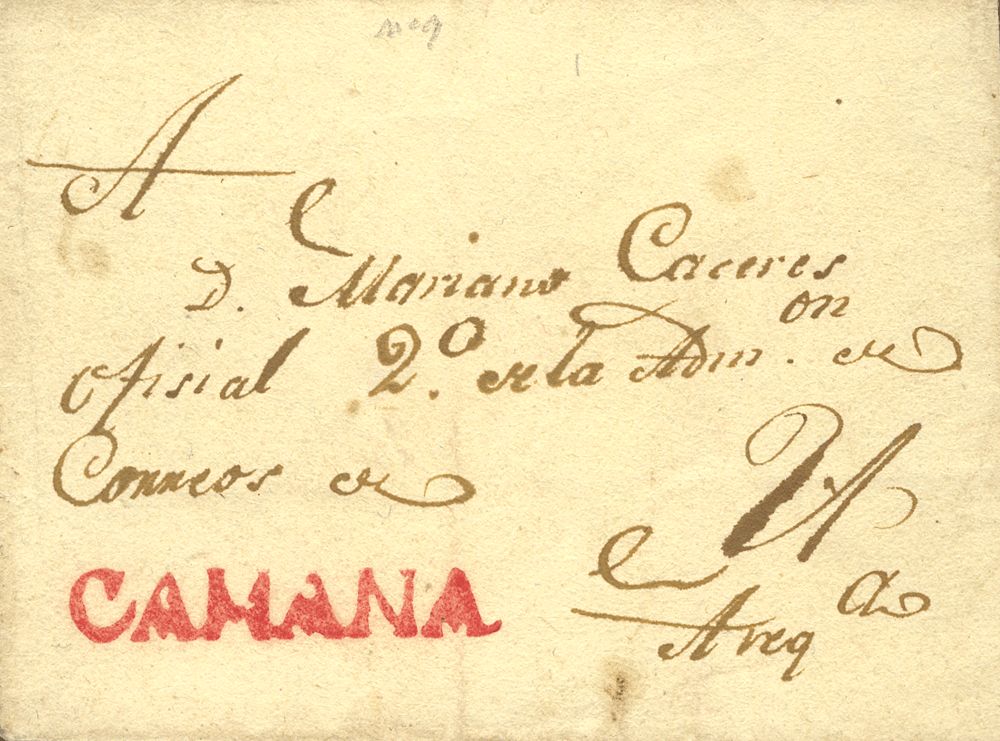 A
D. Mariano Caceres
Ofisial 2º. de la Adm.on de
Correos de
CAMANA
Areq.a